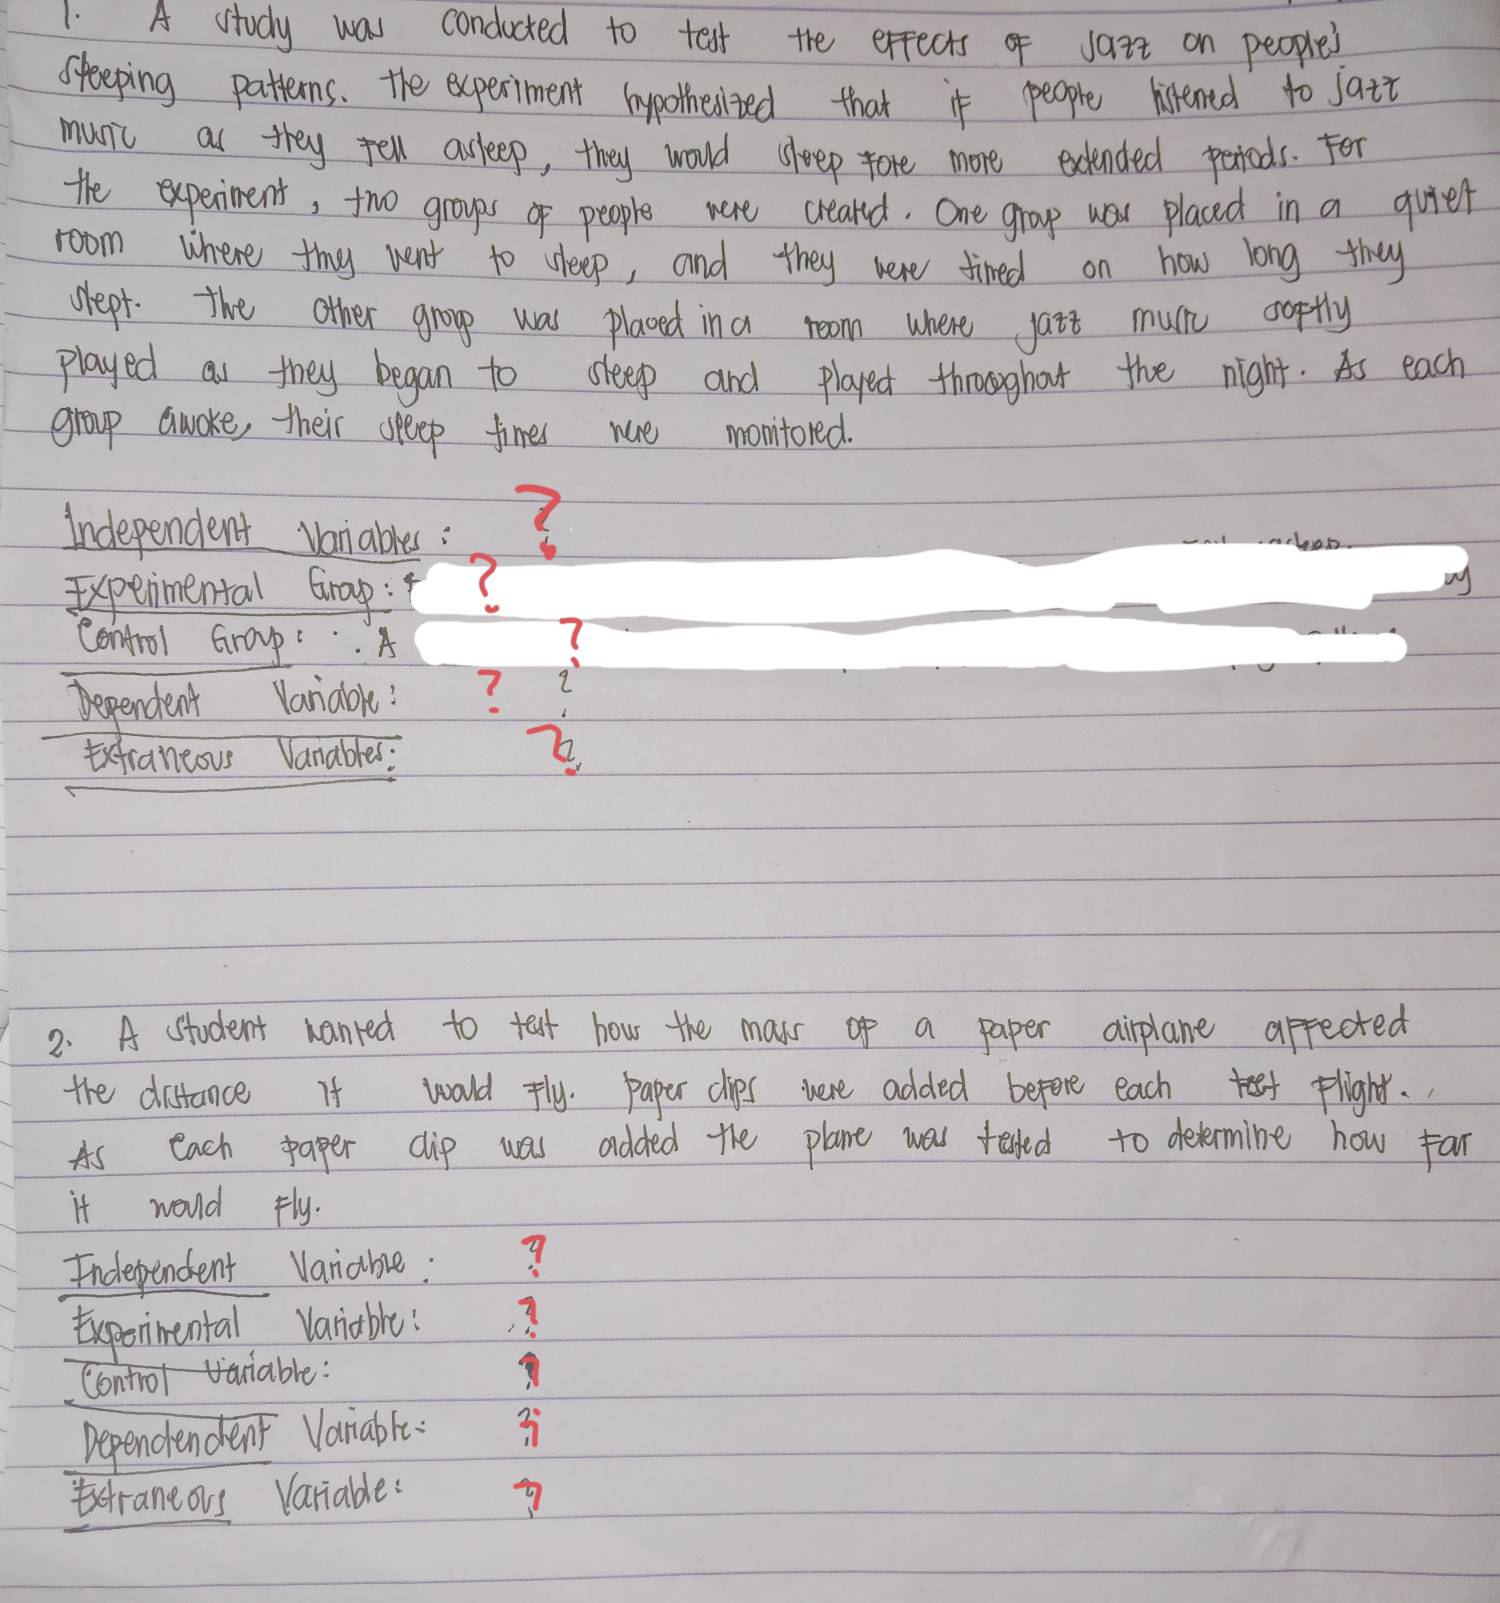 1. A study was conducted to test the effects of Jazz on people's
sleeping patterns. The experiment hypothesized that if people listened to jazz
music as they fell asleep, they would sleep fore more extended periods. For
the experiment, two groups of people were created. One group was placed in a quiet
room where they went to sleep, and they were timed on how long they
slept. The other group was placed in a room where jazz music softly
played as they began to sleep and played throughout the night. As each
group awoke, their sleep times were monitored.
Independent Variables: ?
Experimental Group: ?
Control Group: . A ?
Dependent Variable: ? ?
Extraneous Variables: ?
2. A student wanted to test how the mass of a paper airplane affected
the distance it would fly. Paper clips were added before each test flight.
As each paper clip was added the plane was tested to determine how far
it would fly.
Independent Variable: ?
Experimental Variable: ?
Control Variable: ?
Dependendent Variable: ?
Extraneous Variable: ?